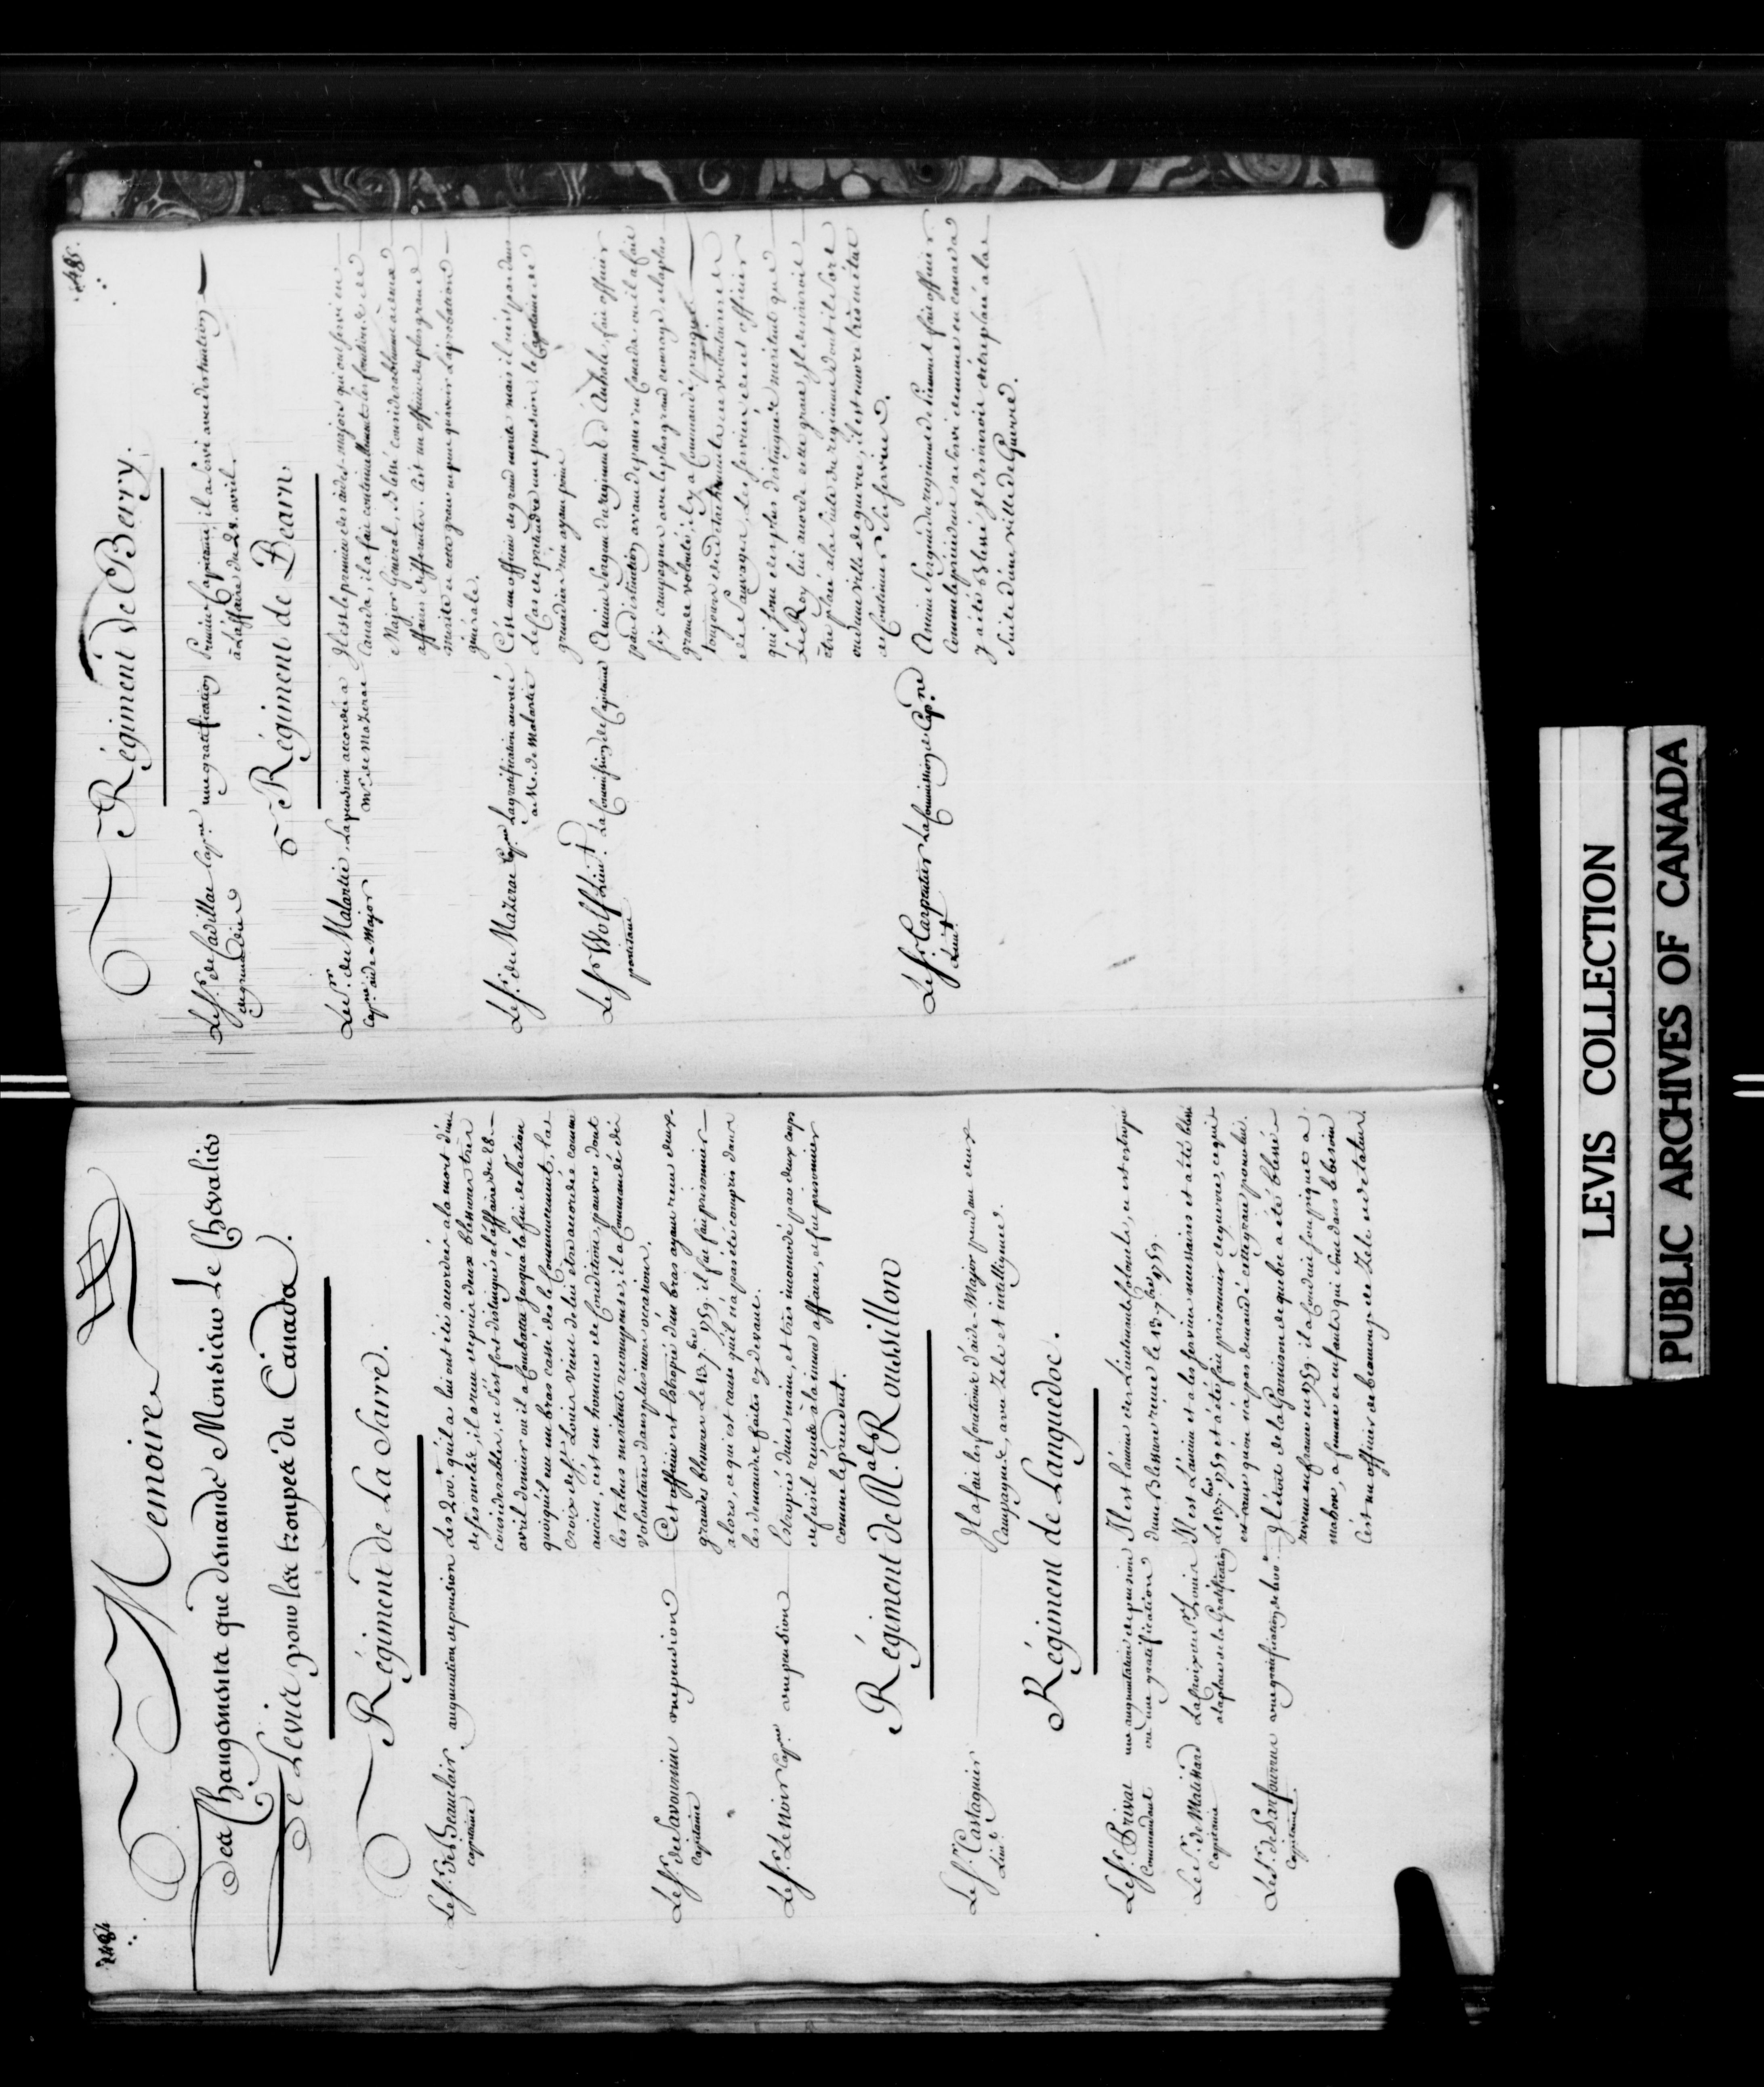 Memoire
Des Changements que demande Monsieur Le Chevalier
De Levis pour les troupes du Canada.
Régiment de La Sarre.
Le Sr. de Beauclair augmention de pension des 200.tt qu'il a lui ont été accordées a la mort d'un
capitaine de ses oncles, il a reçu depuis deux blessures très
considerables, et s'est fort distingué à l'affaire du 28.
avril dernier ou il a Combattu jusqu'a la fin de l'action
quoiqu'il eut un bras cassé dès le Commencement, la
Croix de St. Louis vient de lui etre accordée comme
ancien, c'est un homme de Condition, pauvre dont
les talens meritent recompense, il a Commandé des
Volontaires dans plusieurs occasions.
Le Sr. de Savournin une pension Cet officier est Estropié d'un bras ayant reçu deux
Capitaine grandes blessures Le 13. 7.bre 1759. il fut fait prisonnier
alors, ce qui est cause qu'il n'a pas été compris dans
les demandes faites cy devant.
Le Sr. Le Noir Capne. une pension Estropié d'une main, et très incomodé par deux coups
de fusil reçus à la meme affaire, et fut prisonnier
comme le precedent.
Régiment de Ral. Roussillon
Le Sr. Castagnier Il a fait les fonctions d'aide-Major pendant deux
Lieut. Campagnes, avec Zele et intelligence.
Régiment de Languedoc.
Le Sr. Privat une augmentation de pension Il est l'ancien des Lieutenants Colonels, et est estropié
Commandant ou une gratification d'une Blessure reçue le 13. 7.bre 1759.
Le Sr. de Matissard La Croix de St. Louis Il est L'ancien et a les services necessaires et a été blessé
Capitaine a la place de la Gratification Le 13. 7.bre 1759 et a été fait prisonnier de guerre, ce qui
est cause qu'on n'a pas demandé cette grace pour lui.
Le Sr. de Parfourru une gratification de 400.tt Il étoit de la Garnison de quebec a été blessé
Capitaine. revenu en france en 1759. il a Conduit son piquet a
mahon, a femme et enfants qui sont dans le besoin
C'est un officier de beaucoup de Zele et de talens
Régiment de Berry.
Le Sr. de Cadillac Capne une gratification Premier Capitaine, il a Servi avec distinction
de grenadiers à L'affaire du 28. avril.
Régiment de Bearn
Le Sr. de Malartic La pension accordée a Il est le premier des aides-majors qui ont servi en
Capne. aide-Major Mr. de Mazerac Canada, il a fait continuellement les fonctions de
Major Général, Blessé considerablement à deux
affaires differentes. C'est un officier du plus grand
merite et cette grace ne peut qu'avoir L'aprobation
générale.
Le Sr. de Mazerac Capne La gratification accordée C'est un officier de grand merite mais il n'est pas dans
a Mr. de Malartic le Cas de prétendre une pension, le Capitaine de
grenadiers n'en ayant point
Le Sr. Wolf Lieut. La Commission de Capitaine Ancien Sergent du regiment d'Anhalt, fait officier
partisan par distinction avant de passer en Canada ou il a fait
six campagnes avec le plus grand courage et la plus
grande volonté, il y a Commandé presque
toujours des détachements de volontaires et
de Sauvages, Les services de cet officier
qui sont des plus distingués meritent que
Le Roy lui accorde cette grace, Il desireroit
être placé a la Suite du regiment dont il Sort
ou d'une ville de guerre, il est encore très en état
de Continuer Ses Services.
Le Sr. Carpentier La Commission de Capne Ancien Sergent du regiment de Piemont, fait officier
Lieut. Comme le precedent a Servi de même en canada
y a été Blessé Il desireroit d'etre placé a la
Suite d'une ville de Guerre.
LEVIS COLLECTION
PUBLIC ARCHIVES OF CANADA